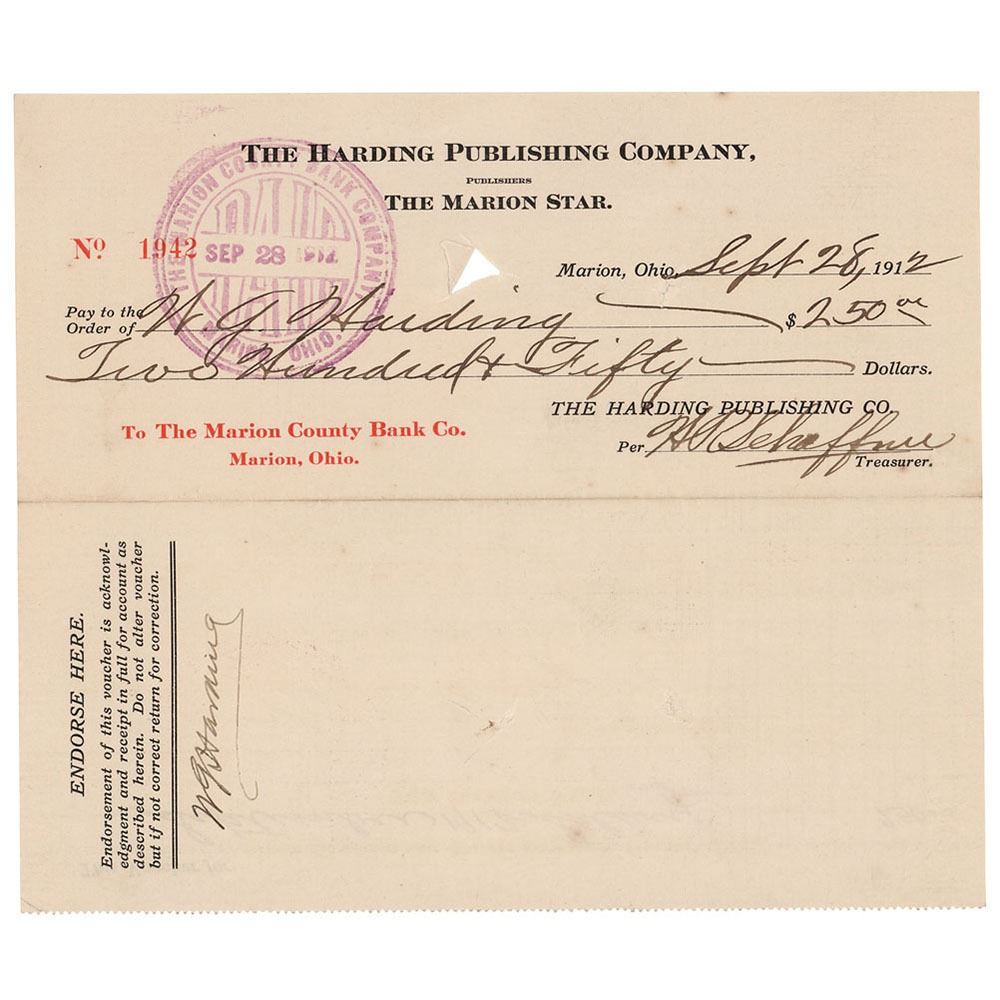 THE HARDING PUBLISHING COMPANY,
PUBLISHERS
THE MARION STAR.
THE MARION COUNTY BANK COMPANY
PAID
SEP 28 1912
MARION, OHIO.
No 1942
Marion, Ohio, Sept 28, 1912
Pay to the
Order of W G Harding $ 250 00
Two Hundred & Fifty Dollars.
THE HARDING PUBLISHING CO.
To The Marion County Bank Co.
Marion, Ohio.
Per H R Schaffner
Treasurer.
ENDORSE HERE.
Endorsement of this voucher is acknowl-
edgment and receipt in full for account as
described herein. Do not alter voucher
but if not correct return for correction.
W G Harding